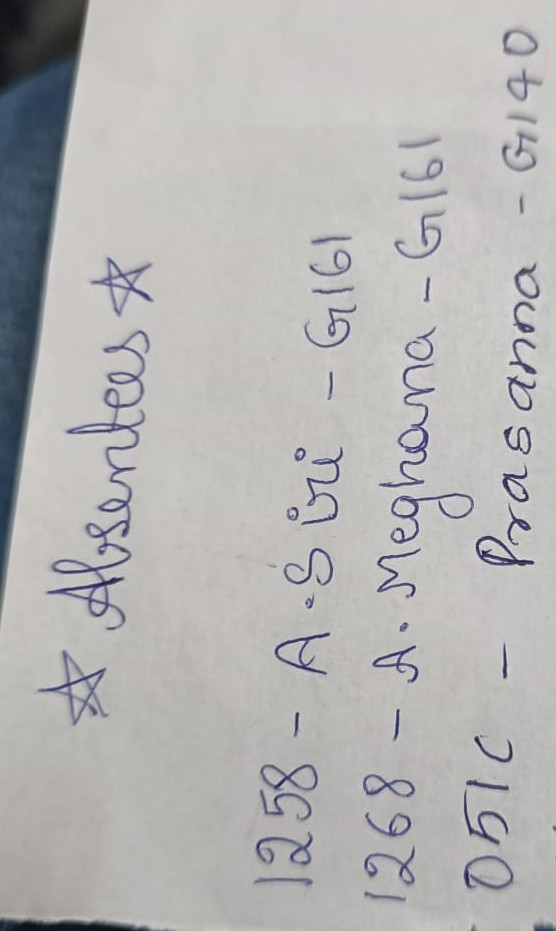 ☆ Absentees ☆
1258 - A. Siri - G161
1268 - A. Meghana - G161
051C - Prasanna - G140